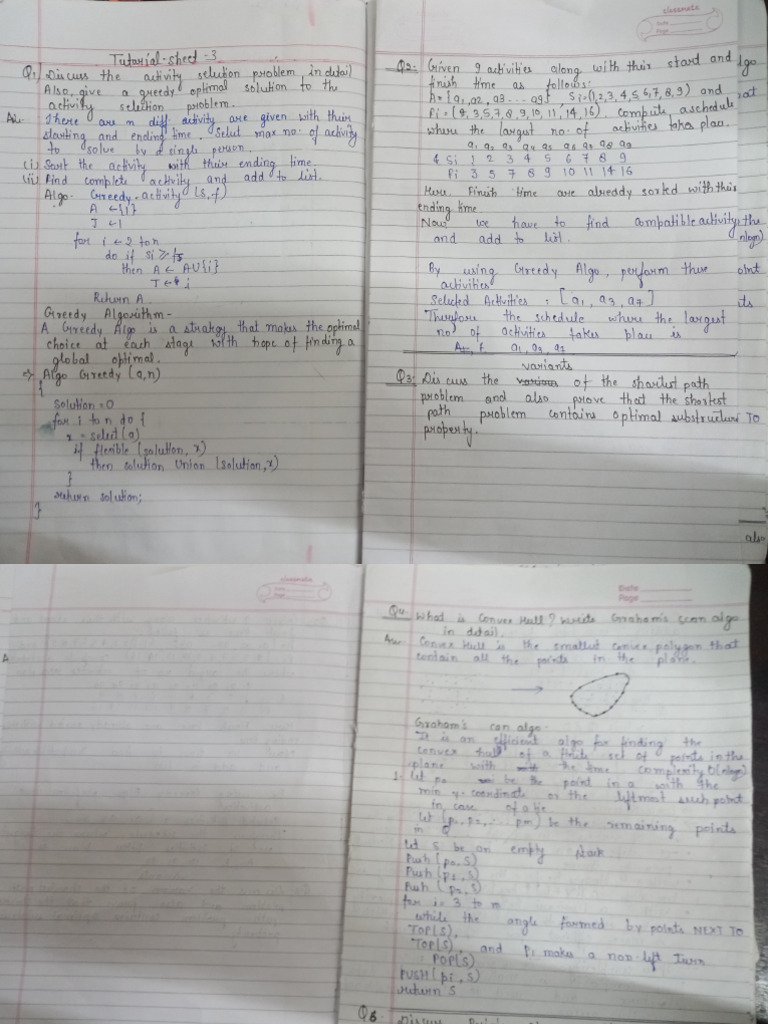 Tutorial-sheet-3
Q1) Discuss the activity selection problem in detail
Also, give a greedy optimal solution to the
activity selection problem.
Ans. There are n diff. activity are given with their
starting and ending time. Select max no. of activity
to solve by a single person.
(i) Sort the activity with their ending time.
(ii) Find complete activity and add to list.
Algo- Greedy-activity (s,f)
A ← {1}
J ← 1
for i ← 2 to n
do if Si ≥ fj
then A ← A∪{i}
J ← i
Return A
Greedy Algorithm -
A Greedy Algo is a strategy that makes the optimal
choice at each stage with hope of finding a
global optimal.
⇒ Algo Greedy (a,n)
{
Solution = 0
for i to n do {
x = select (a)
if flexible (solution, x)
then solution Union (solution, x)
}
return solution;
}
classmate
Date
Page
Q2: Given 9 activities along with their start and
finish time as follows:
A = [a1, a2, a3 ... a9] Si = (1, 2, 3, 4, 5, 6, 7, 8, 9) and
Fi = (4, 3, 5, 7, 8, 9, 10, 11, 14, 16). compute a schedule
where the largest no. of activities takes place.
a1 a2 a3 a4 a5 a6 a7 a8 a9
Si 1 2 3 4 5 6 7 8 9
Fi 3 5 7 8 9 10 11 14 16
Here Finish time are already sorted with their
ending time
Now we have to find compatible activity
and add to list.
By using Greedy Algo, perform three
activities
Selected Activities : [a1, a3, a7]
Therefore the schedule where the largest
no of activities takes place is
a1, a3, a7
variants
Q3: Discuss the of the shortest path
problem and also prove that the shortest
path problem contains optimal substructure
property.
TO
also
classmate
Date
Page
Date
Page
Q4. What is Convex Hull? write Graham's scan algo
in detail.
Ans. Convex Hull is the smallest convex polygon that
contain all the points in the plane.
Graham's can algo-
It is an efficient algo for finding the
convex hull of a finite set of points in the
plane with the time complexity O(nlogn)
1. let p0 be the point in a with the
min y-coordinate or the leftmost such point
in case of a tie
let (p1, p2, ... pm) be the remaining points
in Q
let S be an empty stack
Push (p0, S)
Push (p1, S)
Push (p2, S)
for i = 3 to m
while the angle formed by points NEXT TO
TOP(S),
TOP(S), and Pi makes a non left turn
POP(S)
PUSH (pi, S)
return S
Q6. Discuss